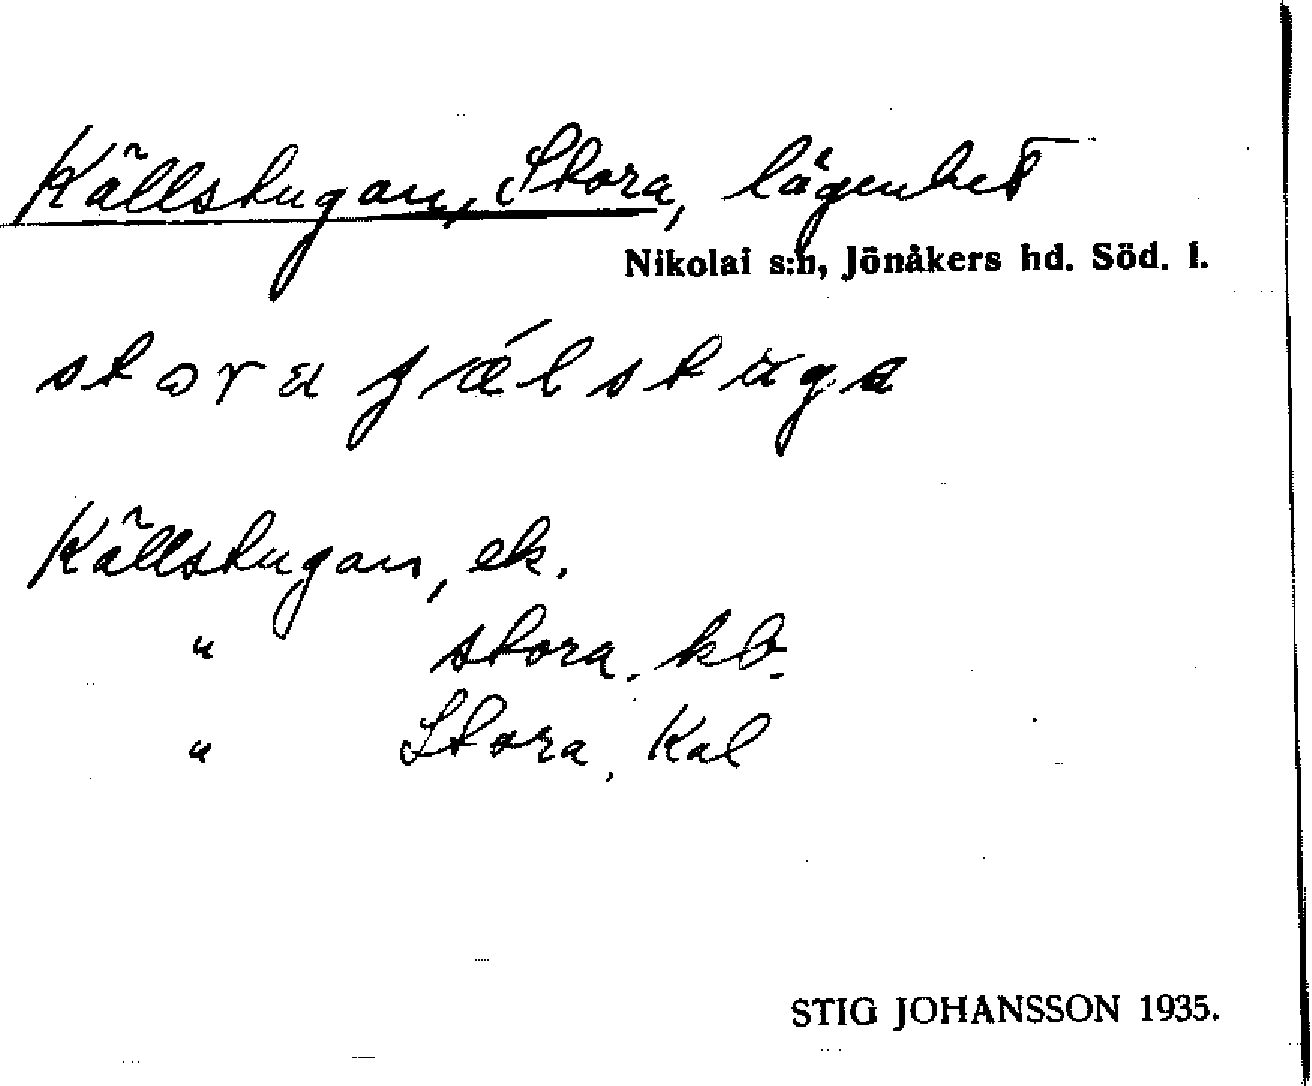 Källstugan, Stora, lägenhet
Nikolai s:n, Jönåkers hd. Söd. l.
stora jälstuga
Källstugan, ek.
" stora, kb.
" Stora, Kal
STIG JOHANSSON 1935.